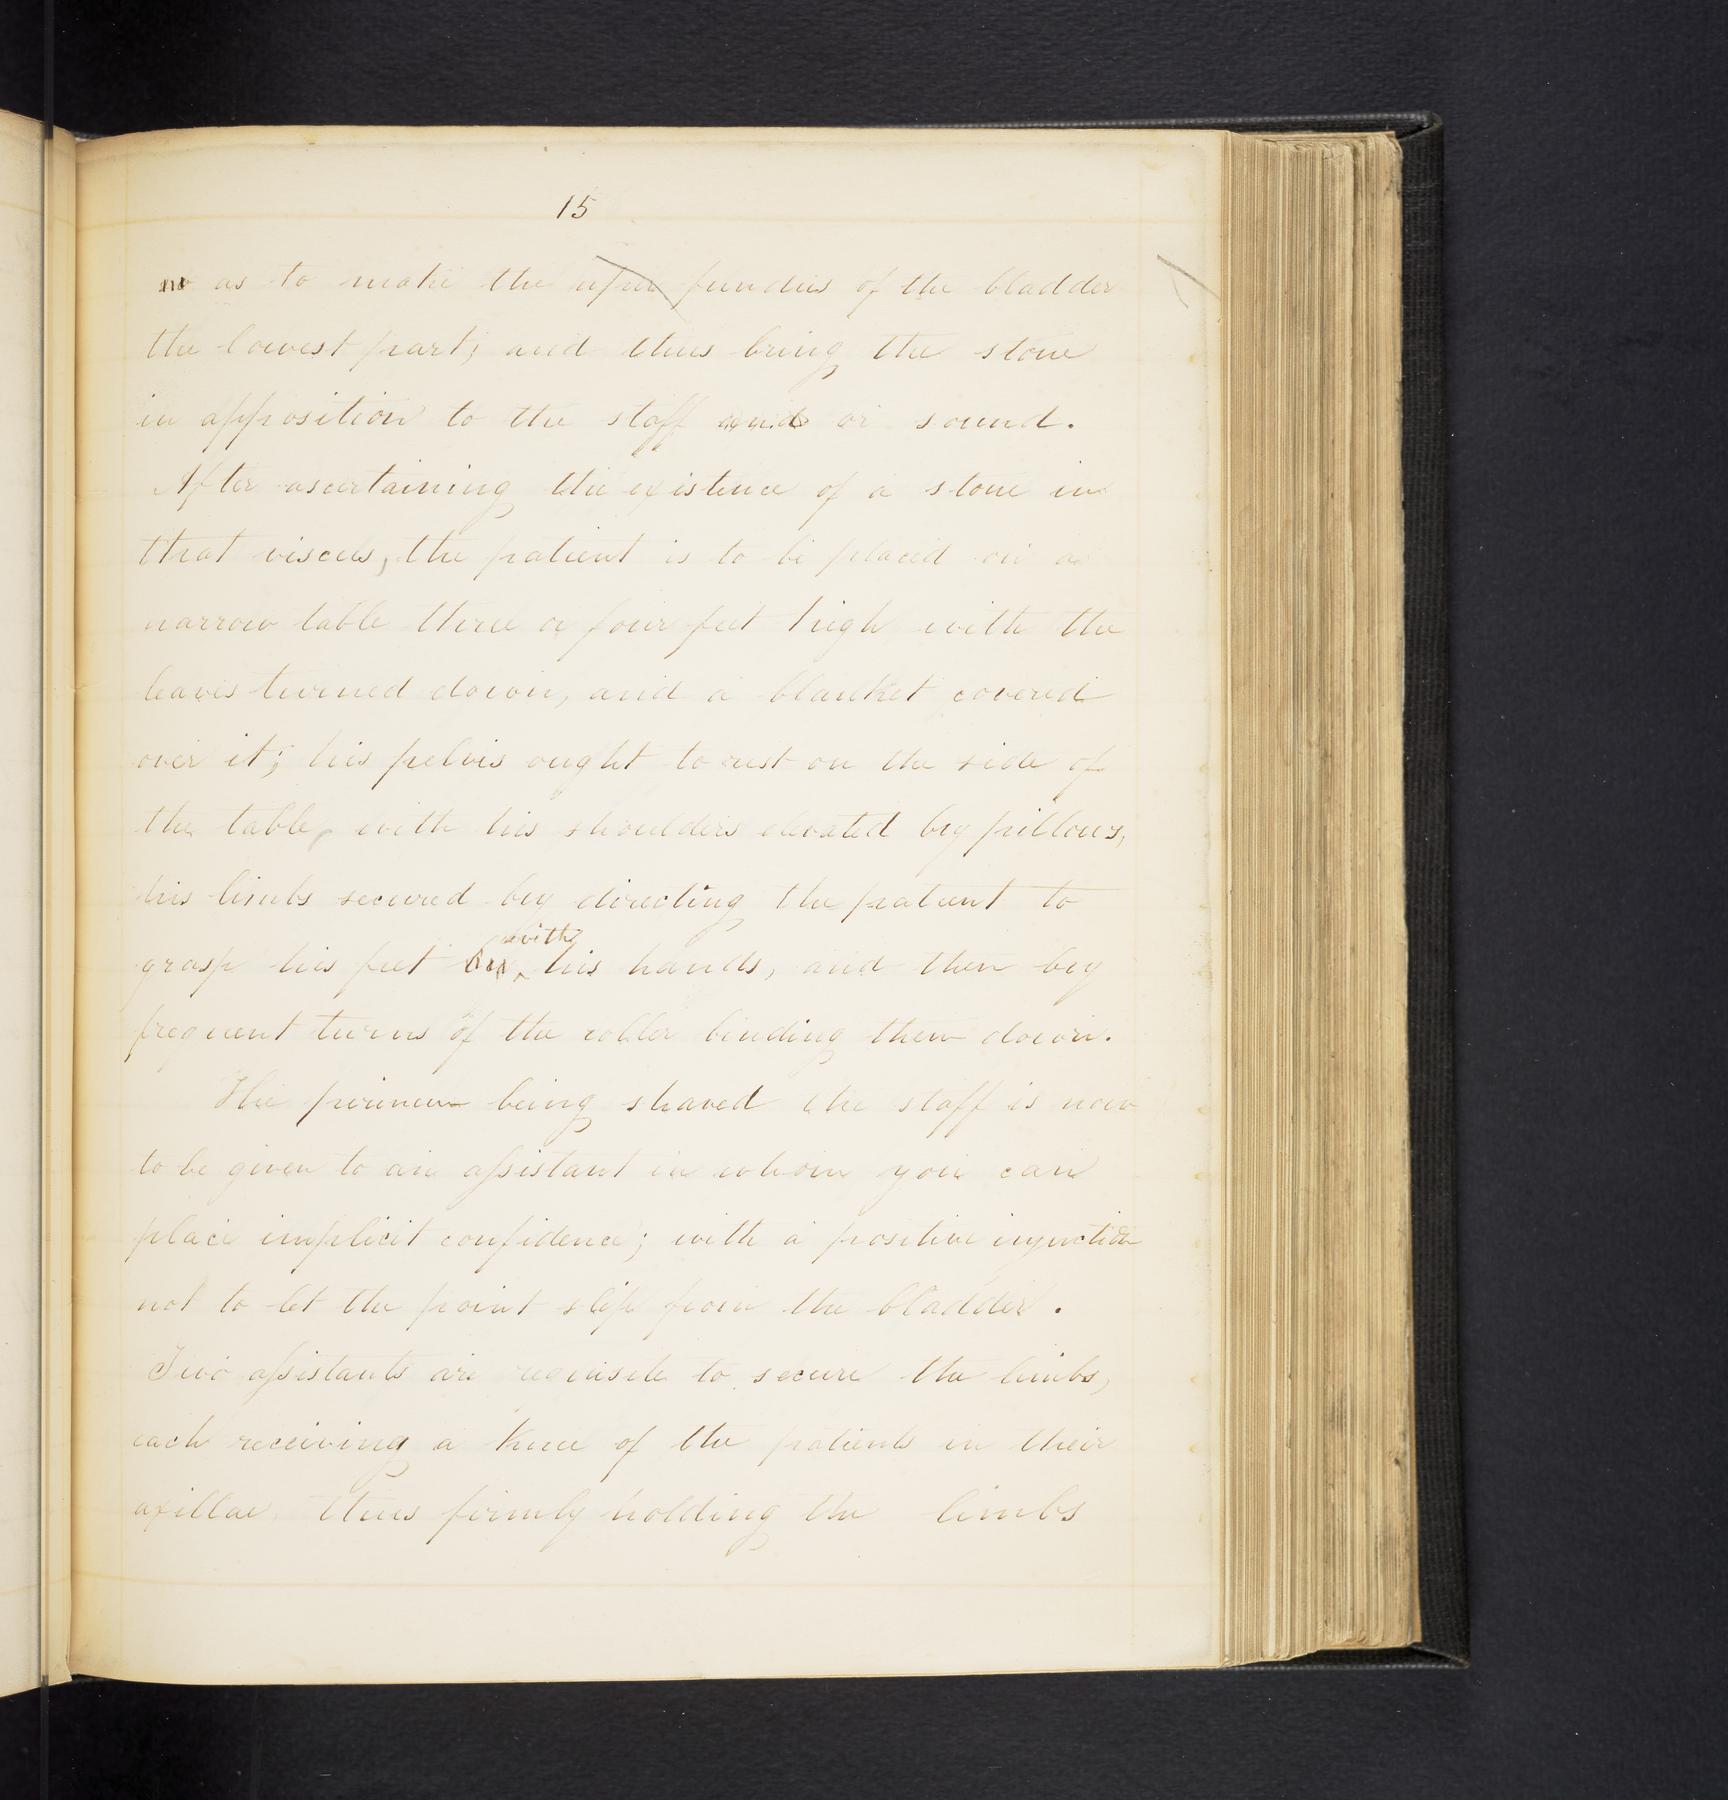 15
so as to make the upper fundus of the bladder
the lowest part; and thus bring the stone
in apposition to the staff and or sound.
After ascertaining the existence of a stone in
that viscus, the patient is to be placed on a
narrow table three or four feet high with the
leaves turned down, and a blanket covered
over it; his pelvis ought to rest on the side of
the table, with his shoulders elevated by pillows,
his limbs secured by directing the patient to
with
grasp his feet by ^ his hands, and then by
frequent turns of the roller binding them down.
The perineum being shaved the staff is now
to be given to an assistant in whom you can
place implicit confidence; with a positive injunction
not to let the point slip from the bladder.
Two assistants are requisite to secure the limbs,
each receiving a knee of the patients in their
axillae thus firmly holding the limbs